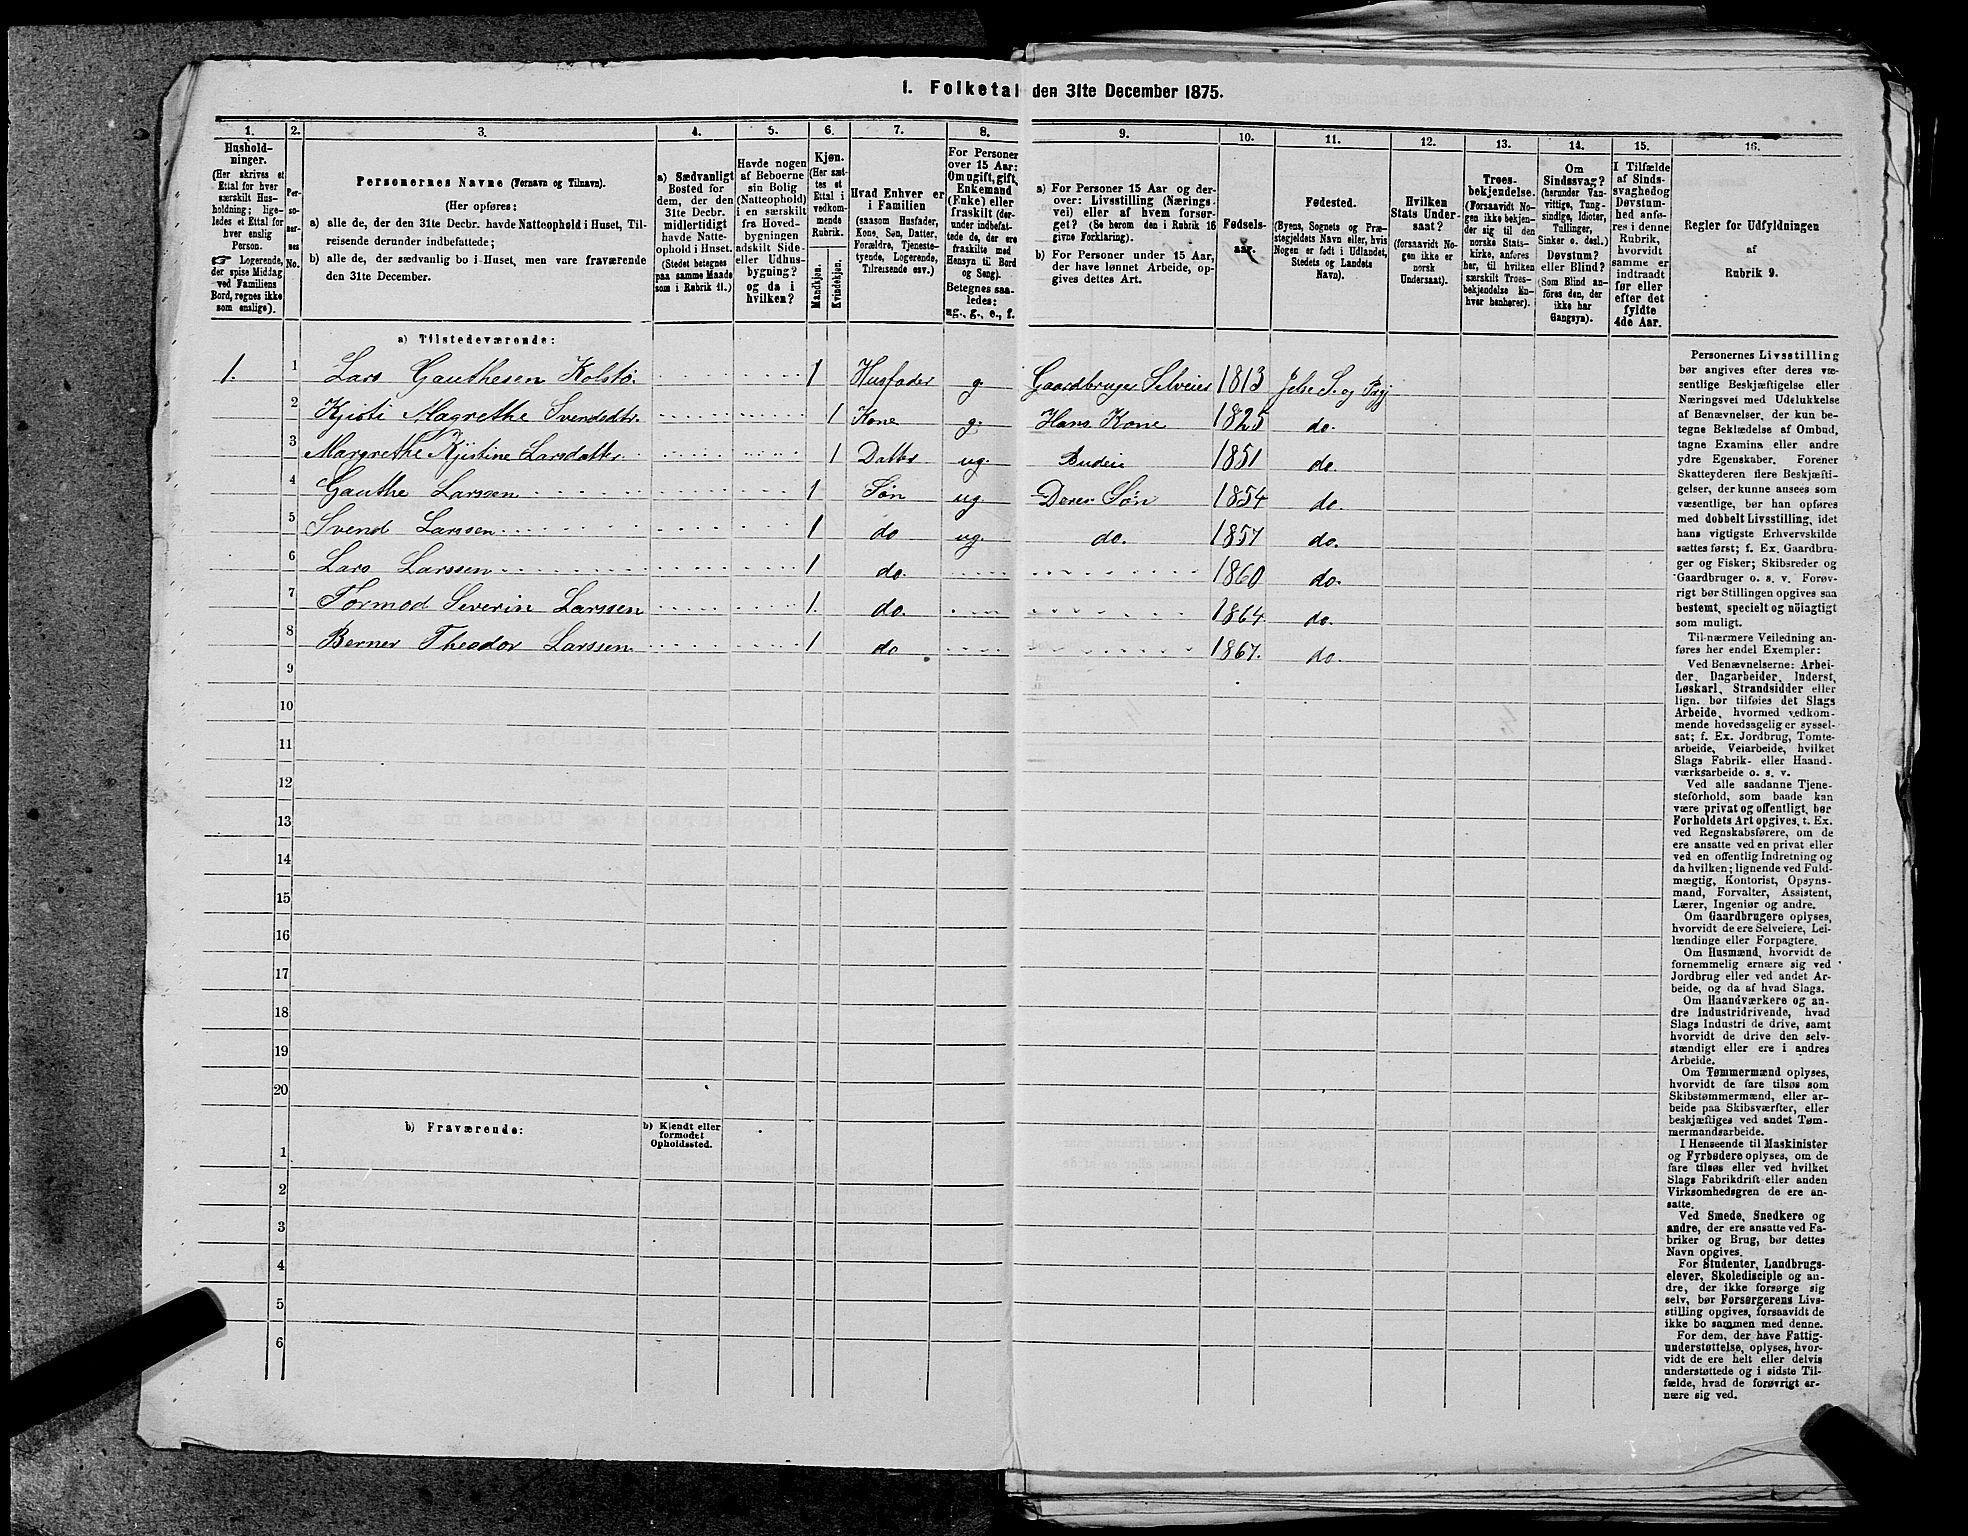 1. Folketal den 31te December 1875.
1. 2. 3. 4. 5. 6. 7. 8. 9. 10. 11. 12. 13. 14. 15. 16.
Hushold-
ninger.
(Her skrives et
Ettal for hver
særskilt Hus-
holdning; lige-
ledes et Ettal for
hver enslig
Person.
☞ Logerende,
der spise Middag
ved Familiens
Bord, regnes ikke
som enslige).
Per-
so-
ner-
nes
No.
Personernes Navne (Fornavn og Tilnavn).
(Her opføres:
a) alle de, der den 31te Decbr. havde Natteophold i Huset, Til-
reisende derunder indbefattede;
b) alle de, der sædvanlig bo i Huset, men vare fraværende
den 31te December.
a) Sædvanligt
Bosted for
dem, der den
31te Decbr.
midlertidigt
havde Natte-
ophold i Huset.
(Stedet betegnes
paa samme Maade
som i Rubrik 11.)
Havde nogen
af Beboerne
sin Bolig
(Natteophold)
i en særskilt
fra Hoved-
bygningen
adskilt Side-
eller Udhus-
bygning?
og da i
hvilken?
Kjøn.
(Her sæt-
tes et
Ettal i
vedkom-
mende
Rubrik.
Mandkjøn.
Kvindekjøn.
Hvad Enhver er
i Familien
(saasom Husfader,
Kone, Søn, Datter,
Forældre, Tjeneste-
tyende, Logerende,
Tilreisende osv.)
For Personer
over 15 Aar:
Om ugift, gift,
Enkemand
(Enke) eller
fraskilt (der-
under indbefat-
tede de, der ere
fraskilte med
Hensyn til Bord
og Seng).
Betegnes saa-
ledes:
ug., g., e., f.
a) For Personer 15 Aar og der-
over: Livsstilling (Nærings-
vei) eller af hvem forsør-
get? (Se herom den i Rubrik 16
givne Forklaring).
b) For Personer under 15 Aar,
der have lønnet Arbeide, op-
gives dettes Art.
Fødsels-
aar.
Fødested.
(Byens, Sognets og Præ-
stegjeldets Navn eller, hvis
Nogen er født i Udlandet,
Stedets og Landets
Navn).
Hvilken
Stats Under-
saat?
(forsaavidt No-
gen ikke er
norsk
Undersaat).
Troes-
bekjendelse.
(Forsaavidt No-
gen ikke bekjen-
der sig til den
norske Stats-
kirke, anføres
her, til hvilken
særskilt Troes-
bekjendelse En-
hver henhører).
Om
Sindssvag?
(herunder Van-
vittige, Tung-
sindige, Idioter,
Tullinger,
Sinker o. desl.)
Døvstum?
eller Blind?
(Som Blind an-
føres den, der
ikke har
Gangsyn).
I Tilfælde
af Sinds-
svaghed og
Døvstum-
hed anfø-
res i denne
Rubrik,
hvorvidt
samme er
indtraadt
før eller
efter det
fyldte
4de Aar.
Regler for Udfyldningen
af
Rubrik 9.
a) Tilstedeværende:
1. 1 Lars Gauthesen Kolstø. 1 Husfader g. Gaardbruger Selveier 1813 Jelse S. og Prgj
2 Kjisti Magrethe Svendsdtr. 1 Kone g. Hans Kone 1825 do.
3 Margrethe Kjistine Larsdatter 1 Datter ug Budeie 1851 do
4 Gauthe Larssen 1 Søn ug Deres Søn 1854 do.
5 Svend Larssen 1 do ug. do. 1857 do.
6 Lars Larssen 1 do. 1860 do.
7 Tormod Severin Larssen 1. do. 1864 do.
8 Berner Theodor Larssen 1 do 1867. do.
9
10
11
12
13
14
15
16
17
18
19
20
b) Fraværende:
b) Kjendt eller
formodet
Opholdssted.
1
2
3
4
5
6
Personernes Livsstilling
bør angives efter deres væ-
sentlige Beskjæftigelse eller
Næringsvei med Udelukkelse
af Benævnelser, der kun be-
tegne Beklædelse af Ombud,
tagne Examina eller andre
ydre Egenskaber. Forener
Skatteyderen flere Beskjæfti-
gelser, der kunne ansees som
væsentlige, bør han opføres
med dobbelt Livsstilling, idet
hans vigtigste Erhvervskilde
sættes først; f. Ex. Gaardbru-
ger og Fisker; Skibsreder og
Gaardbruger o. s. v. Forøv-
rigt bør Stillingen opgives saa
bestemt, specielt og nöiagtigt
som muligt.
Til nærmere Veiledning an-
føres her endel Exempler:
Ved Benævnelserne: Arbei-
der, Dagarbeider, Inderst,
Løskarl, Strandsidder eller
lign. bør tilføies det Slags
Arbeide, hvormed vedkom-
mende hovedsagelig er syssel-
sat; f. Ex. Jordbrug, Tomte-
arbeide, Veiarbeide, hvilket
Slags Fabrik- eller Haand-
værksarbeide o. s. v.
Ved alle saadanne Tjene-
steforhold, som baade kan
være privat og offentligt, bør
Forholdets Art opgives, t. Ex.
ved Regnskabsførere, om de
ere ansatte ved en privat eller
ved en offentlig Indretning og
da hvilken; lignende ved Fuld-
mægtig, Kontorist, Opsyns-
mand, Forvalter, Assistent,
Lærer, Ingeniør og andre.
Om Gaardbrugere oplyses,
hvorvidt de ere Selveiere, Lei-
lændinge eller Forpagtere.
Om Husmænd, hvorvidt de
fornemmelig ernære sig ved
Jordbrug eller ved andet Ar-
beide, og da af hvad Slags.
Om Haandværkere og an-
dre Industridrivende, hvad
Slags Industri de drive, samt
hvorvidt de drive den selv-
stændigt eller ere i andres
Arbeide.
Om Tømmermænd oplyses,
hvorvidt de fare tilsøs som
Skibstømmermænd, eller ar-
beide paa Skibsværfter, eller
beskjæftiges ved andet Tøm-
mermandsarbeide.
I Henseende til Maskinister
og Fyrbødere oplyses, om de
fare tilsøs eller ved hvilket
Slags Fabrikdrift eller anden
Virksomhedsgren de ere an-
satte.
Ved Smede, Snedkere og
andre, der ere ansatte ved Fa-
briker og Brug, bør dettes
Navn opgives.
For Studenter, Landbrugs-
elever, Skoledisciple og an-
dre, der ikke forsørge sig
selv, bør Forsørgerens Livs-
stilling opgives, forsaavidt de
ikke bo sammen med denne.
For dem, der have Fattig-
understøttelse, oplyses, hvor-
vidt de ere helt eller delvis
understøttede og i sidste Til-
fælde, hvad de forøvrigt er-
nære sig ved.